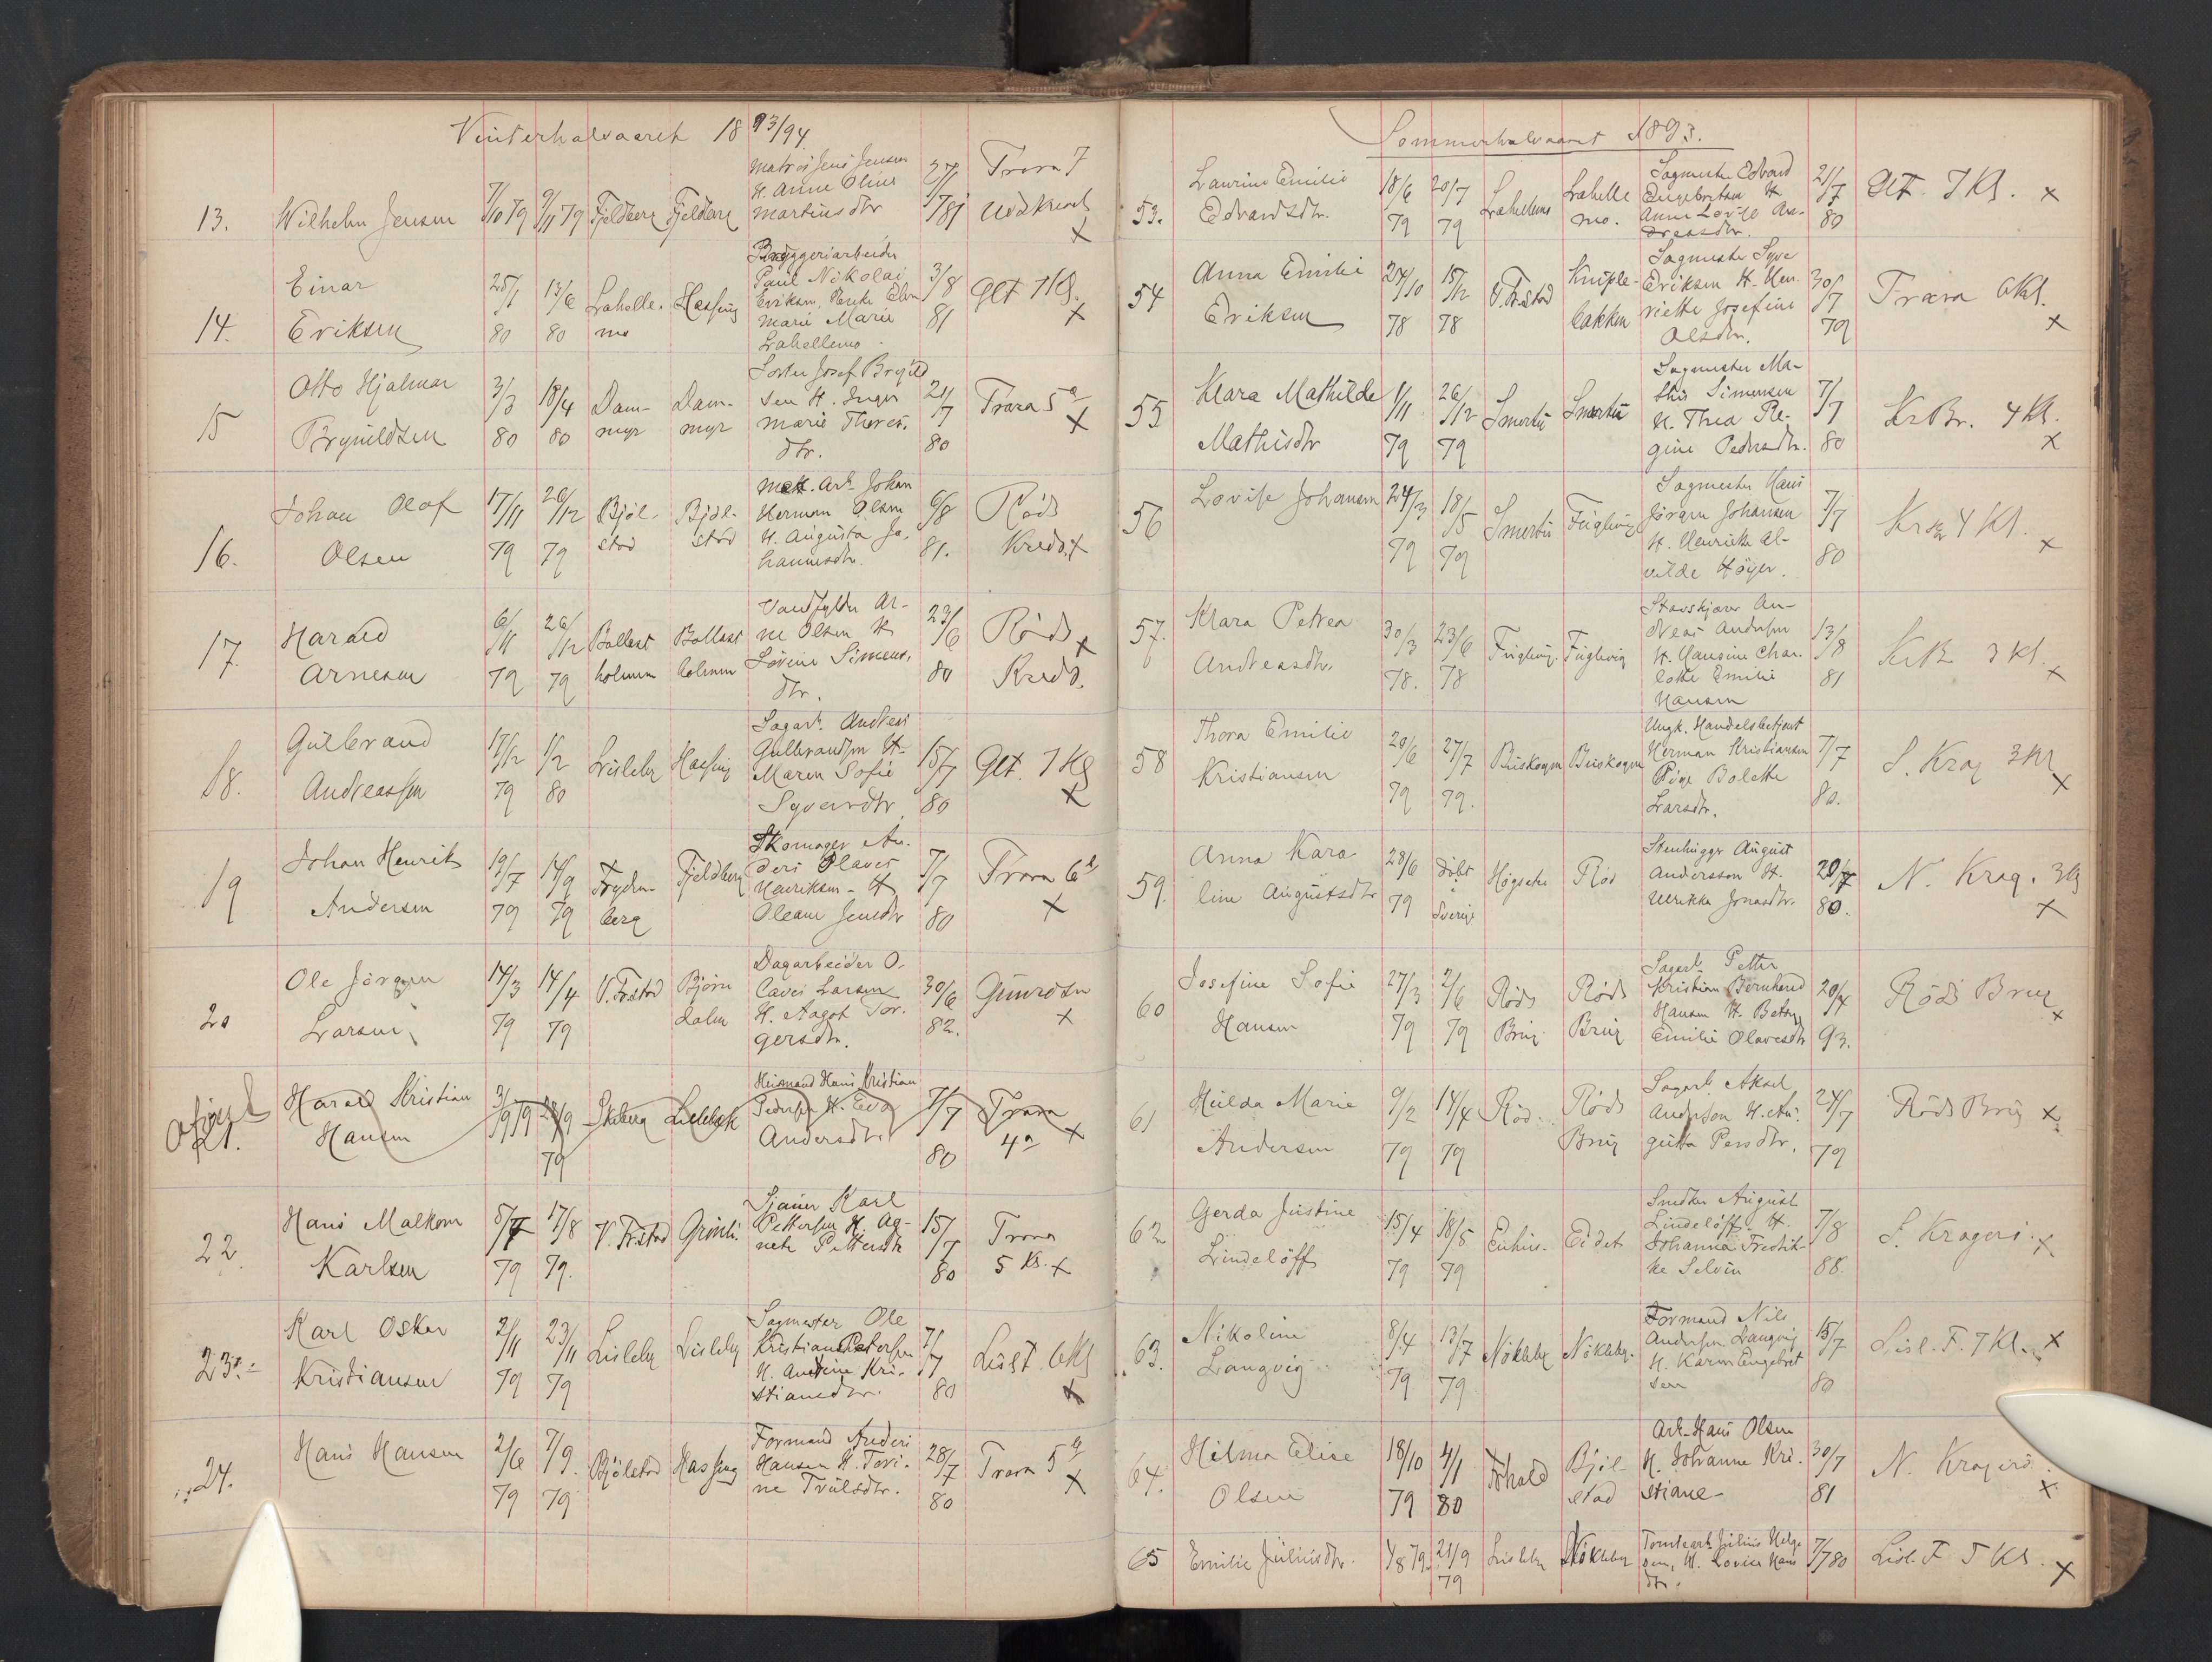 Vinterhalvaaret 1893/94.
13. Wilhelm Jensen 7/10 79 9/11 79 Fjeldberg Fjeldberg
Matros Jens Jensen
H. Anne Oline
Martinsdtr
27/7 81
Trara 7
14. Einar
Eriksen
25/1 80 13/6 80
Lahelle-
mo
Bryggeriarbeider
Paul Nikolai
Eriksen,
Marie Marie
Lahellemo.
3/8 81
Glt 7 Kl.
x
15 Otto Hjalmar
Brynildsen
3/3 80 18/4 80
Dam-
myr
Dam-
myr
Josef Brynild
sen H. Inger
Marie Thores.
dtr.
21/7 80
Trara 5a
x
16. Johan Olaf
Olsen
17/11 79 26/12 79
Bjöl-
stad
Bjöl-
stad
Mek. Arb. Johan
Herman Olsen
H. Augusta Jo-
hannesdtr.
6/8 81.
Röds
Kreds. x
17. Harald
Arnesen
6/11 79 26/12 79
Ballast
holmen
Ballast
holmen
Ar-
ne Olsen H.
Lovine Simens.
dtr.
23/6 80
Röds x
Kreds.
18. Gulbrand
Andreassen
17/12 79 1/2 80
Lisleby
Sagarb. Andreas
Gulbrandsen H.
Maren Sofie
Syversdtr.
15/7 80
Glt. 7 Kl
x
19 Johan Henrik
Andersen
19/7 79 14/9 79
berg
Fjeldberg
Skomager An-
ders Olaves
Henriksen - H
Oleane Jensdtr
7/7 80
Trara 6a
x
20 Ole Jörgen
Larsen
14/3 79 14/4 79
V. Fr.stad
Björn
dalen
Dagarbeider O-
laves Larsen
H. Aagot Tor-
gersdtr.
30/6 82.
x
21. Harald Kristian
Hansen
3/9 79 28/9 79
Skeberg
Lillebæk
Huismand Hans Kristian
Pedersen H. Eva
Andersdtr.
7/7 80
Trara
4a x
22. Hans Malkom
Karlsen
5/7 79 17/8 79.
V. Fr.stad
Grönli.
Sjauer Karl
Pettersen H. Ag-
nete Pettersdtr
15/7 80
Trara
5 Kl. x
23. Karl Oskar
Kristiansen
2/11 79 23/11 79
Lisleby Lisleby
Sagmester Ole
Kristian Petersen
H. Antine Kri-
stiansdtr.
7/7 80
Lislt. 6 Kl
x
24. Hans Hansen
2/6 79 7/9. 79
Bjölstad
Formand Anders
Hansen H. Tori-
ne Trulsdtr.
28/7 80
Trara 5a
x
Sommerhalvaaret 1893.
53. Laurine Emilie
Edvardsdtr.
18/6 79 20/7 79
Lahellemo
Lahelle
mo.
Sagmester Edvard
Engebretsen H
Anne Lovise An-
dreasdtr.
21/7 80
Glt. 7 Kl. x
54 Anna Emilie
Eriksen
24/10 78 15/12 78
V. Fr.stad
Kniple-
bakken
Sagmester Syver
Eriksen H. Hen-
riette Josefine
Olsdtr.
30/7 79
Trara 6 Kl.
x
55 Klara Mathilde
Mathisdtr
1/11 79 26/12 79
Smertu Smertu
Sagmester Ma-
this Simensen
H. Thea Re-
gine Pedersdtr.
7/7 80
Kr Br. 4 Kl.
x
56 Lovise Johansen
24/3 79 18/5 79
Smertu Fuglevig
Sagmester Hans
Jörgen Johansen
H. Henriette Al-
vilde Höyer.
7/7 80
4 Kl.
x
57. Klara Petrea
Andreasdtr.
30/3 78. 23/6 78
Fuglevig. Fuglevig
An-
dreas Andersen
H. Hansine Char-
lotte Emilie
Hansen
13/8 81
3 Kl.
x
58 Thora Emilie
Kristiansen
20/6 79 27/7 79.
Buskogen Buskogen
Ungk. Handelsbetjent
Herman Kristiansen
Pige Bolette
Larsdtr.
7/7 80.
S. Krag 3 Kl
x
59. Anna Karo-
line Augustsdtr
28/6 79
döbt
i
Sverige
Röd
Stenhugger August
Andersson H.
Ulrikka Jonasdtr.
20/7 80.
N. Krag. 3 Kl
x
60 Josefine Sofie
Hansen
27/3 79 2/6 79
Röds
Brug
Röds
Brug
Sagarb. Petter
Kristian Bernhard
Hansen H. Betsy
Emilie Olavesdtr
20/4 93.
Röds Brug
x
61 Hulda Marie
Andersen
9/2 79 14/4 79
Röd.
Röds
Brug
Sagarb. Aksel
Andersen H. Au-
gusta Persdtr.
24/7 79
Röds Brug x
62 Gerda Justine
Lindelöff
15/4 79 18/5 79
Enhus. Eidet
Smeden August
Lindelöff H.
Johanna Fredrik-
ke Selvin
7/8 88.
S. Krageri. x
63. Nikoline
Langvig
8/4 79 13/7 79
Nökleby Nökleby.
Formand Nils
Andersen Langvig
H. Karen Engebret
sen
15/7 80
Lisl. F. 7 Kl. x
64. Hilma Elise
Olsen
18/10 79 4/1 80
Bjöl-
stad
Arb. Hans Olsen
H. Johanne Kri-
stiane -
30/7 81
N. Krageri.
x
65 Emilie Juliusdtr.
1/8 79 21/9 79
Lisleby Nökleby
Tomtearb. Julius Helge
sen, H. Lovise Hans
dtr.
7/7 80
Lisl. F 5 Kl. x